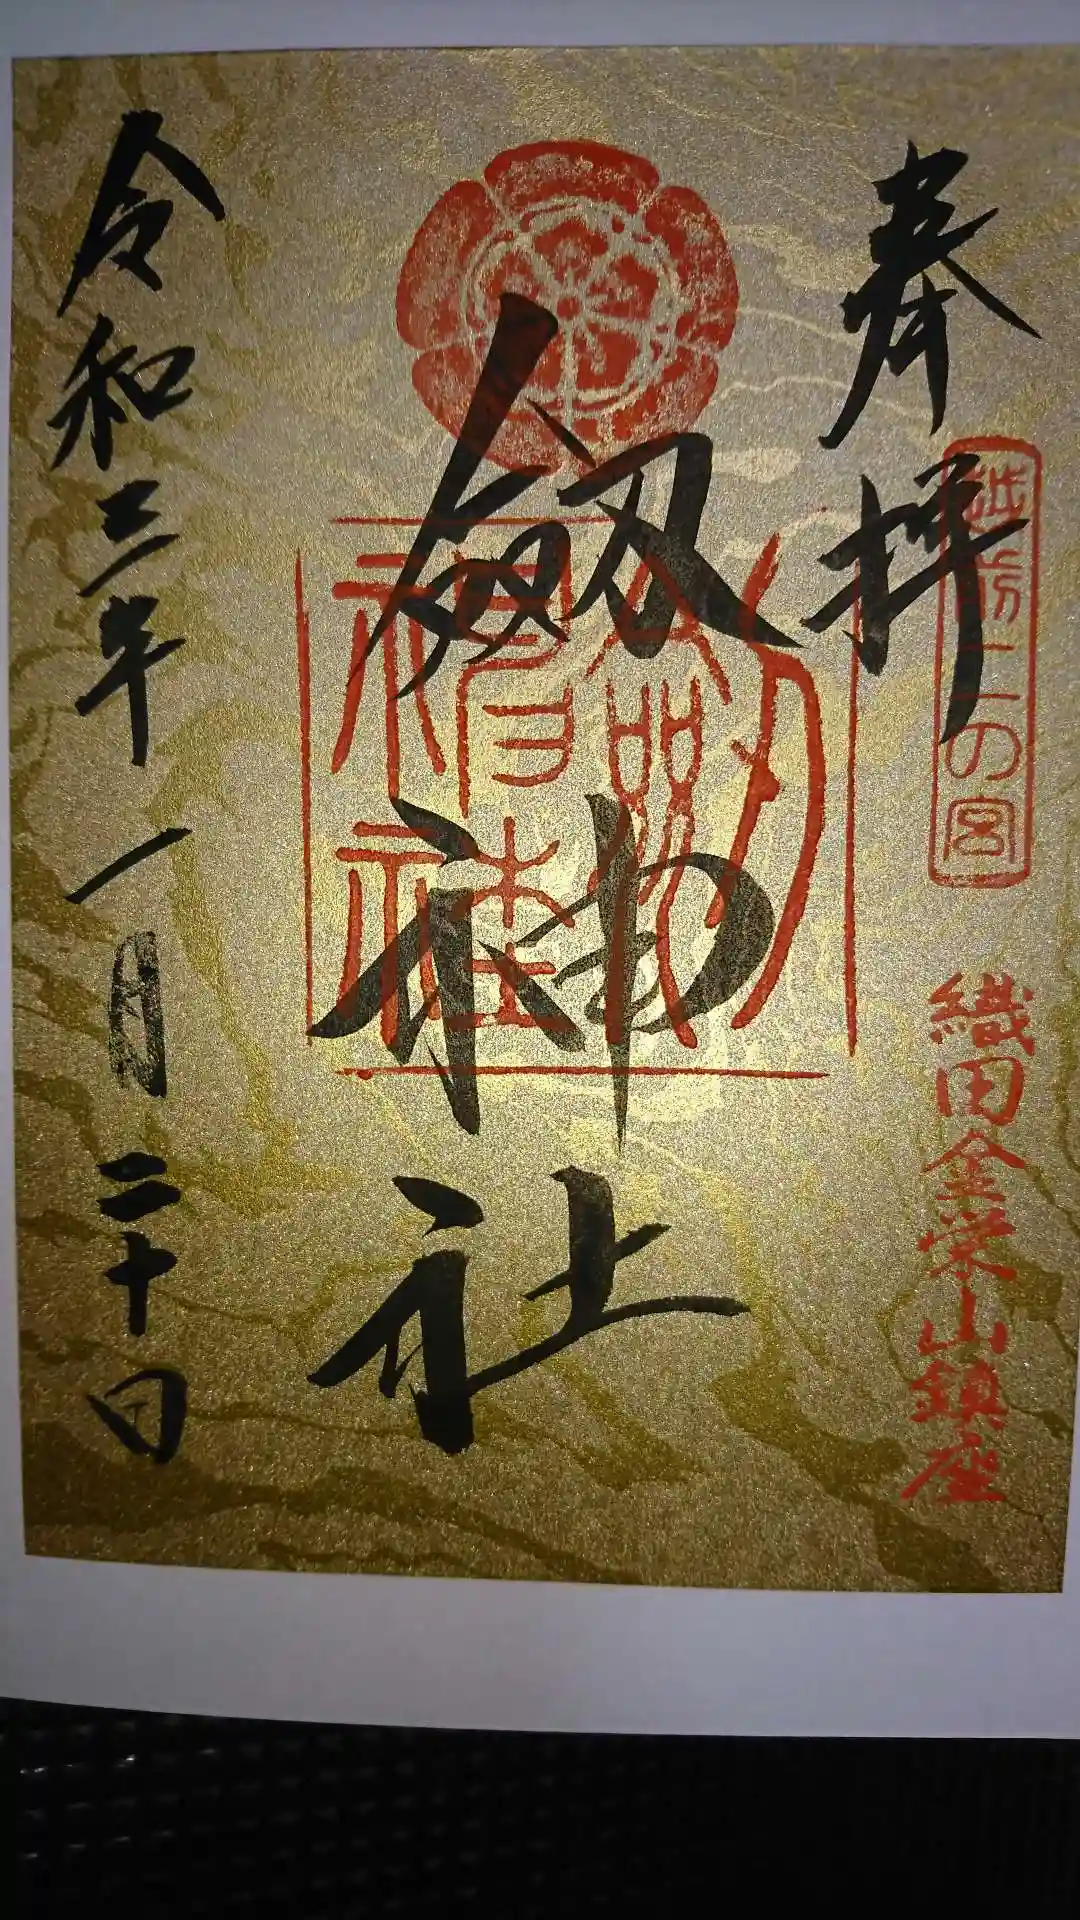 奉拝
越前二の宮
織田金栄山鎮座
劔神社
劔神社
令和三年一月二十日